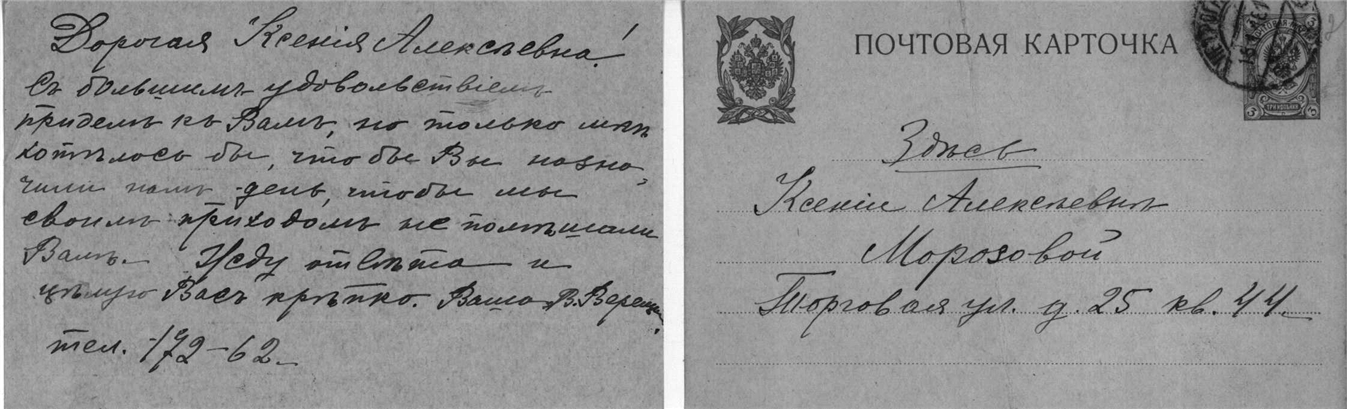 Дорогая Ксенія Алексѣевна!
Съ большимъ удовольствіемъ
придемъ къ Вамъ, но только мнѣ
хотѣлось бы, что бы Вы назна-
чили намъ день, чтобы мы
своимъ приходомъ не помѣшали
Вамъ. Жду отвѣта и
цѣлую Васъ крѣпко. Ваша В.
тел. 172-62.
ПОЧТОВАЯ КАРТОЧКА
ТРИ КОПѢЙКИ
3 3
Здѣсь
Ксеніи Алексѣевнѣ
Морозовой
Торговая ул. д. 25 кв. 44.